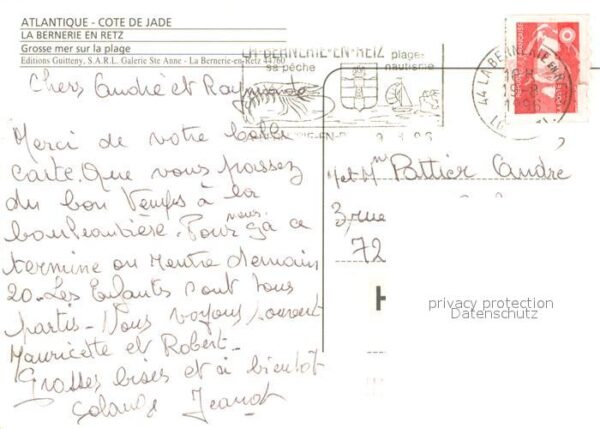 ATLANTIQUE - COTE DE JADE
LA BERNERIE EN RETZ
Grosse mer sur la plage
Editions Guitteny, S.A.R.L. Galerie Ste Anne - La Bernerie-en-Retz 44760
LA BERNERIE-EN-RETZ
sa pêche
plage
nautisme
44 LA BERNERIE EN RETZ
18 H
1996
Chers André et Raymonde
Merci de votre belle
carte. Que vous passez
du bon temps à la
Pour nous ça ce
termine on rentre demain
20. Les Enfants sont tous
partis - Nous voyons souvent
Mauricette et Robert -
Grosses bises et à bientôt
Solange Jeanot
Mr et Mme Pottier André
3, rue
72
privacy protection
Datenschutz